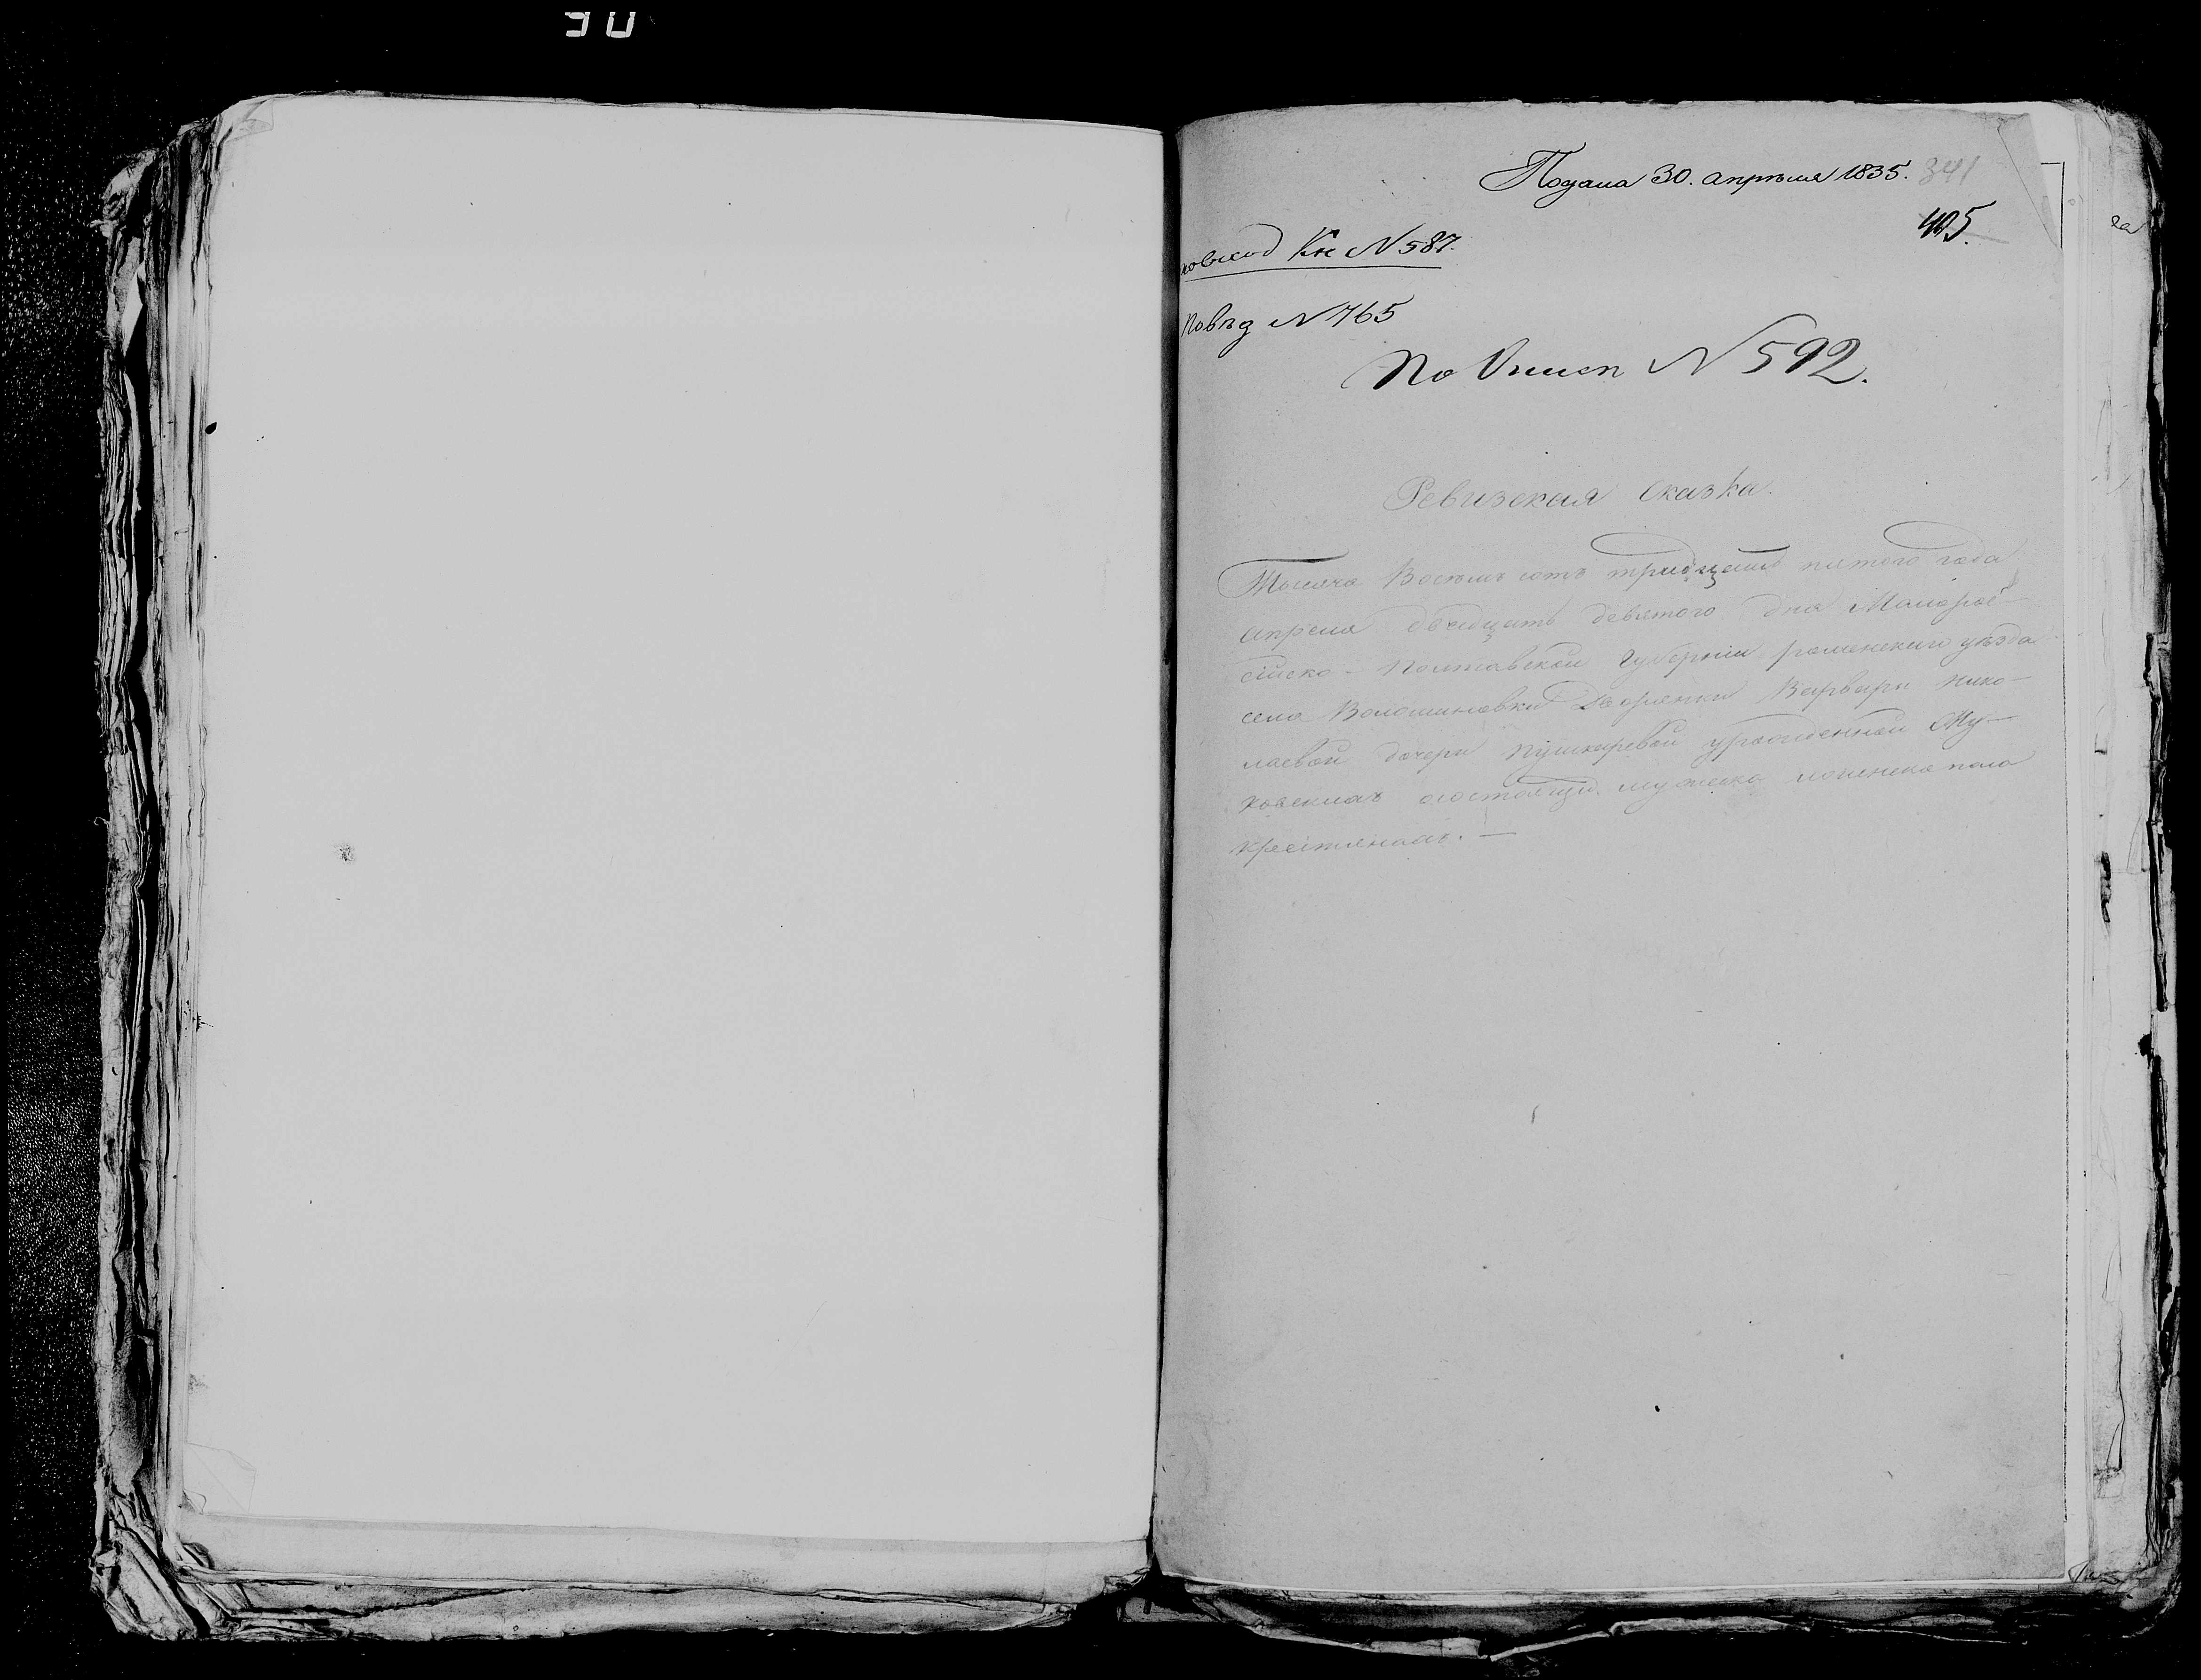 Подана 30. апрѣля 1835. 341
405.
Кн N 587.
По вѣд N 765
По Описи N 592.
Ревизская сказка.
Тысяча Восемь сотъ тридцать пятого года
апреля двадцать девятого дня Малорос-
сійско-Полтавской Губерніи роменского уѣзда
села Волошиновки Дворянки Варвары Нико-
лаевой дочери Пушкаревой урожденной
состоящихъ мужеска и женска пола
крестьянахъ. —